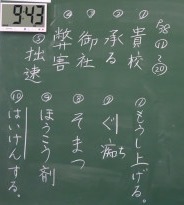 P38
⑪〜⑳
①貴校
②承る
③御社
④弊害
⑤拙速
①もうし上げる。
②ぐ痴ち
③そまつ
⑨ほうこう剤
⑩はいけんする。
9:43